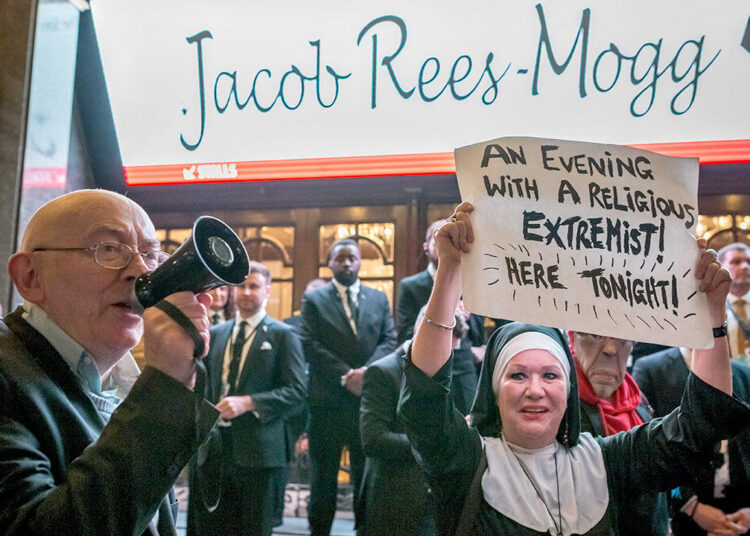 Jacob Rees-Mogg
STALLS
AN EVENING
WITH A RELIGIOUS
EXTREMIST!
HERE TONIGHT!